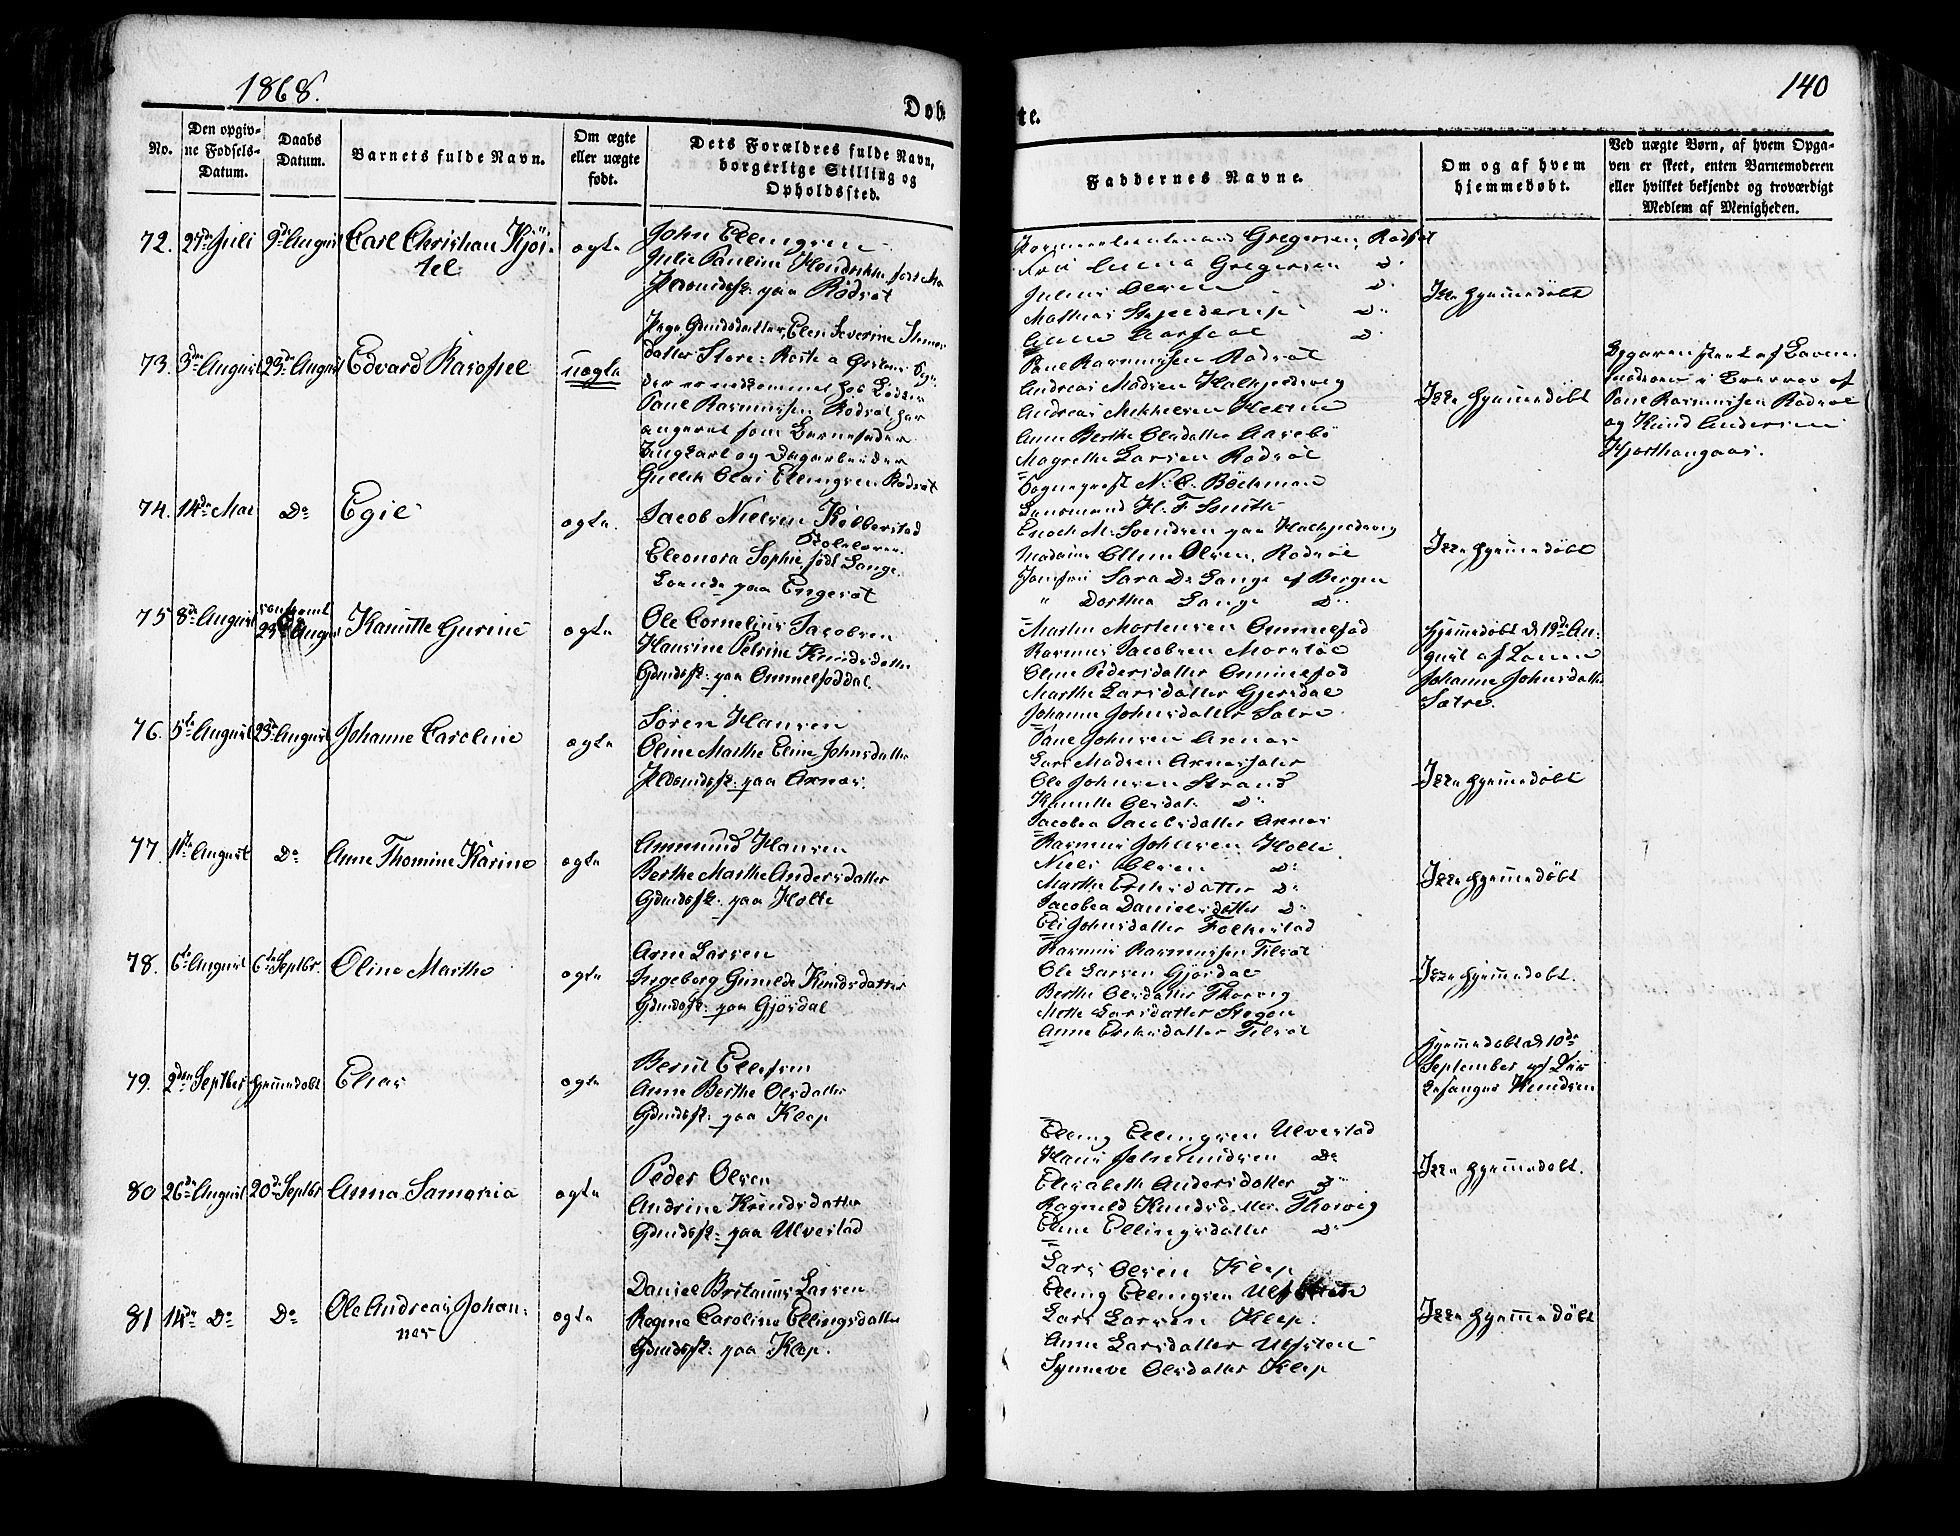 1868.
140
Døbte.
No.
Den opgiv-
ne Fødsels-
Datum.
Daabs
Datum.
Barnets fulde Navn.
Om ægte
eller uægte
født.
Dets Forældres fulde Navn,
borgerlige Stilling og
Opholdssted.
Faddernes Navne.
Om og af hvem
hjemmedøbt.
Ved uægte Børn, af hvem Opga-
ven er skeet, enten Barnemoderen
eller hvilket bekjendt og troværdigt
Medlem af Menigheden.
72. 27de Juli 9de August Carl Christian Kjös-
tel
ægte
John Ellingsen
Julie Pauline Hendrikke født
Pldsmdsfk: paa Rödsæt
Gregersen Rødsæt
Gregersen Do
Julius Olsen Do
Mathias Do
Do
Ikke hjemmedøbt
73. 3die August 23de August Edvard Rasofiel
uægte
Pige Gmdsdatter Elen Severine
datter Store-
Paul Rasmussen Rødsæt har
angivet som Barnefader
Ungkarl og Dagarbeider
Gullik Elai Ellingsen Rødsæt
Paul Rasmussen Rødsæt
Andreas Madsen Halkjedsvig
Andreas Mikkelsen
Anne Berthe Olsdatter Aarebö
Magrethe Larsen Rødsæt
Ikke hjemmedøbt
af
Paul Rasmussen Rødsæt
og Knud Andersen
Hjorthaugaas.
74. 14de Mai Do Egil
ægte.
Jacob Nielsen Kolberstad
Eleonora Sophie født Lange.
paa Engesæt
Sogneprest N. C. Böckman
Lensmand H. F. Smith
Enoch M. Svendsen paa Halkjedsvig
Madame Ellen Olsen, Rødsæt
Jomfru Sara De Lange af Bergen
" Dorthea Lange Do
Ikke hjemmedøbt
75 8de August
23de August Kanutte Gurine
ægte
Ole Cornelius Jacobsen
Hansine Petrine Knudsdatter
Gdmdsfk: paa Ommelfoddal.
Martin Mortensen Ommelfod
Rasmus Jacobsen
Eline Pedersdatter Ommelfod
Marthe Larsdatter Gjersdal
Johanne Johnsdatter Sætre
Hjemmedøbt d 19de Au-
gust af Konen
Johanne Johnsdatter
Sætre.
76. 5te August 23de August Johanne Caroline
ægte
Søren Hansen
Oline Marthe Eline Johnsdatter
Pldsmdsfk: paa Arnes.
Paul Johnsen Aarnes
Lars Madsen
Ole Johnsen Strand
Kanutte Olsdatr Do
Jacobea Jacobsdatter Aarnes
Ikke hjemmedøbt
77. 11te August Do Anne Thomine Karine
ægte
Ammund Hansen
Berthe Marthe Andersdatter
Gdmdsfk: paa Holte
Rasmus Johnsen Holte
Niels Olsen Do
Marthe Eriksdatter Do
Jacobea Danielsdatter Do
Eli Johnsdatter Folkestad
Ikke hjemmedøbt
78. 6te August 6te Septbr. Oline Marthe
ægte
Arne Larsen
Ingeborg Gunilde Knudsdatter
Gdmdsfk: paa Gjörsdal
Rasmus Rasmussen Tilsæt
Ole Larsen Gjördal
Berthe Olsdatter Thorvig
Mette Larsdatter Stegen
Anne Eriksdatter Tilsæt
Ikke hjemmedøbt.
79. 2den Septber hjemmedøbt Elias
ægte
Bernt Ellefsen
Anne Berthe Olsdatter
Gdmdsfk: paa Klep
Hjemmedøbt d 10de
September af Kir-
kesanger Knudsen
80 26de August 20de Septbr. Anna Samaria
ægte
Peder Olsen
Andrine Knudsdatter
Gdmdsfk: paa Ulvestad
Elling Ellingsen Ulvestad
Hans Do
Elisabeth Andersdatter Do
Ragnild Knudsdatter Thorvig
Ellingsdatter Do
Ikke hjemmedøbt.
81 14de Do Do Ole Andreas Johan-
nes
ægte
Daniel Britanus Larsen
Regine Caroline Ellingsdatter
Gdmdsfk: paa Klep.
Lars Olsen Klep
Elling Ellingsen
Lars Larsen Klep.
Anne Larsdatter Ulfsten
Synneve Olsdatter Klep
Ikke hjemmedøbt